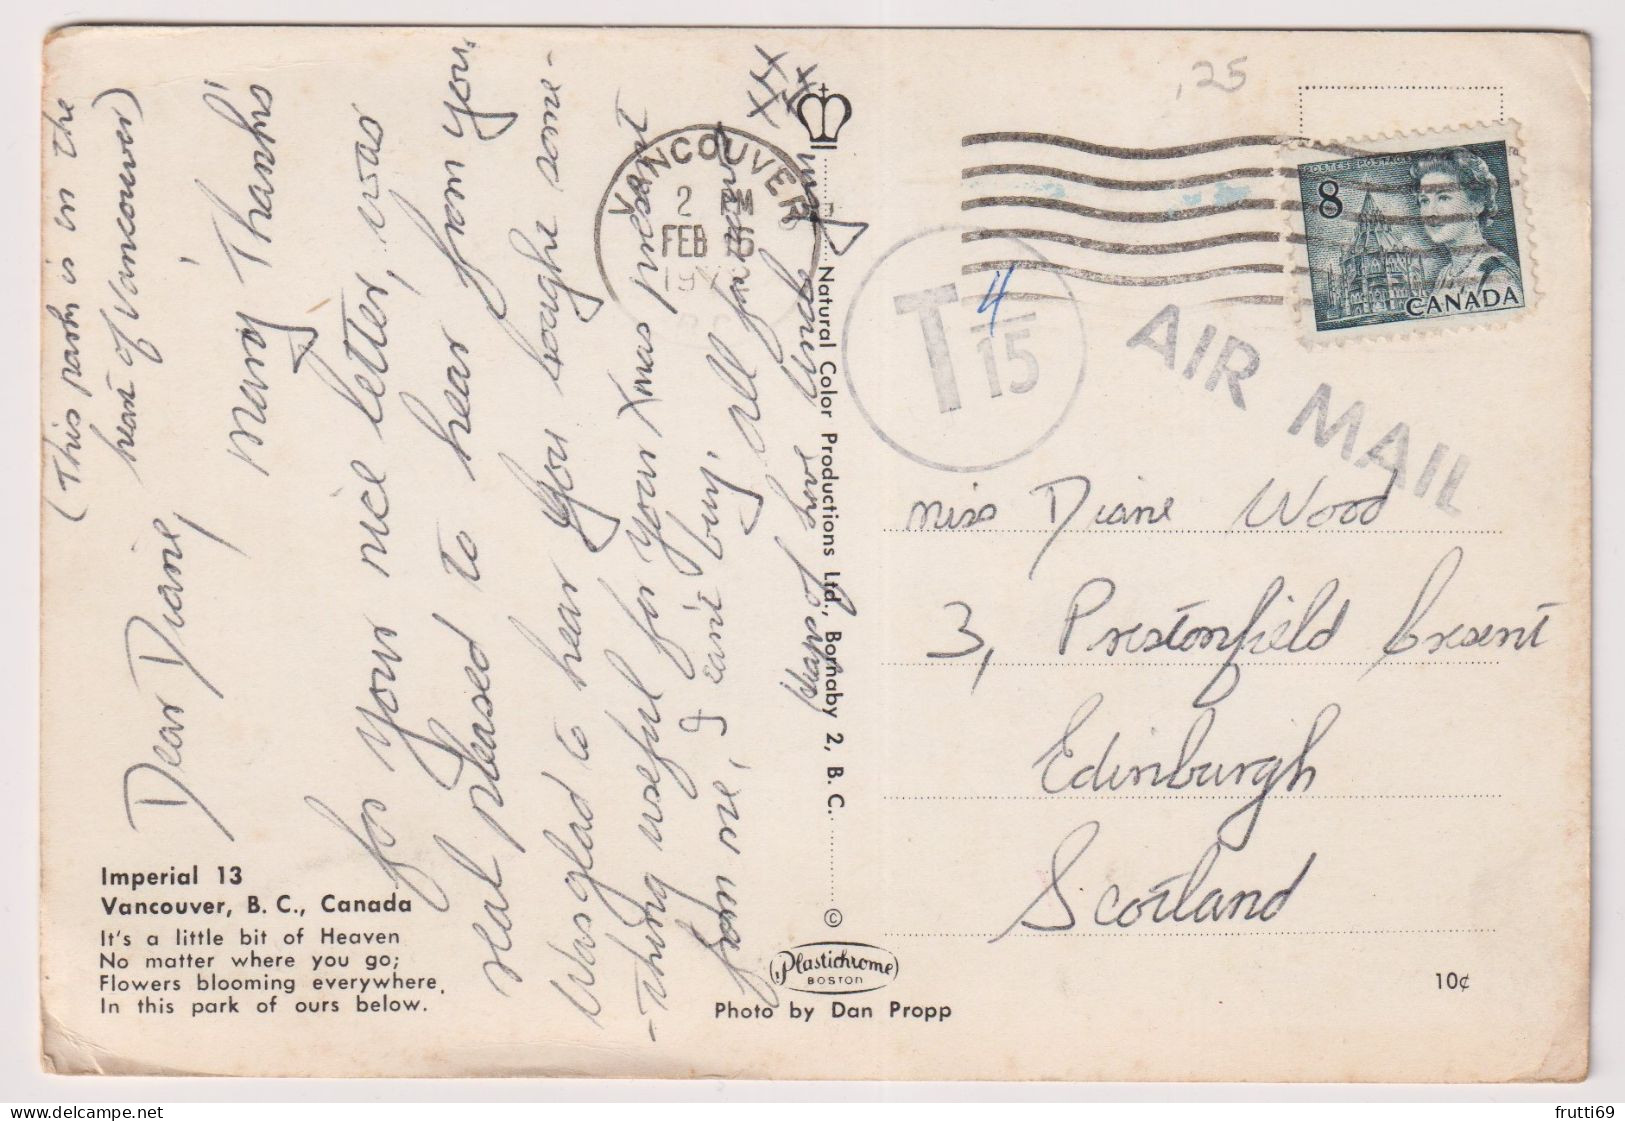 (This park is in the
heart of Vancouver)
Dear Diane,
Many Thanks
for your nice letter, was
real pleased to hear from you.
Was glad to hear you bought some-
-thing useful for your Xmas present
from me, I can't buy. All for now
Heaps of love
XXX
XX
Imperial 13
Vancouver, B. C., Canada
It's a little bit of Heaven
No matter where you go;
Flowers blooming everywhere,
In this park of ours below.
Natural Color Productions Ltd., Bornaby 2, B. C.
©
Plastichrome
BOSTON
Photo by Dan Propp
VANCOUVER
2 PM
FEB 16
,25
T 4
15
AIR MAIL
POSTES POSTAGE
8
CANADA
Miss Diane Wood
3, Prestonfield Cresent
Edinburgh
Scotland
10¢
frutti69